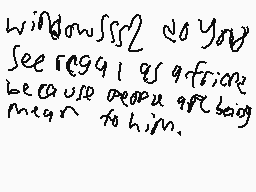 windowsss2 do you
see regal as a friend
because people are being
mean to him.